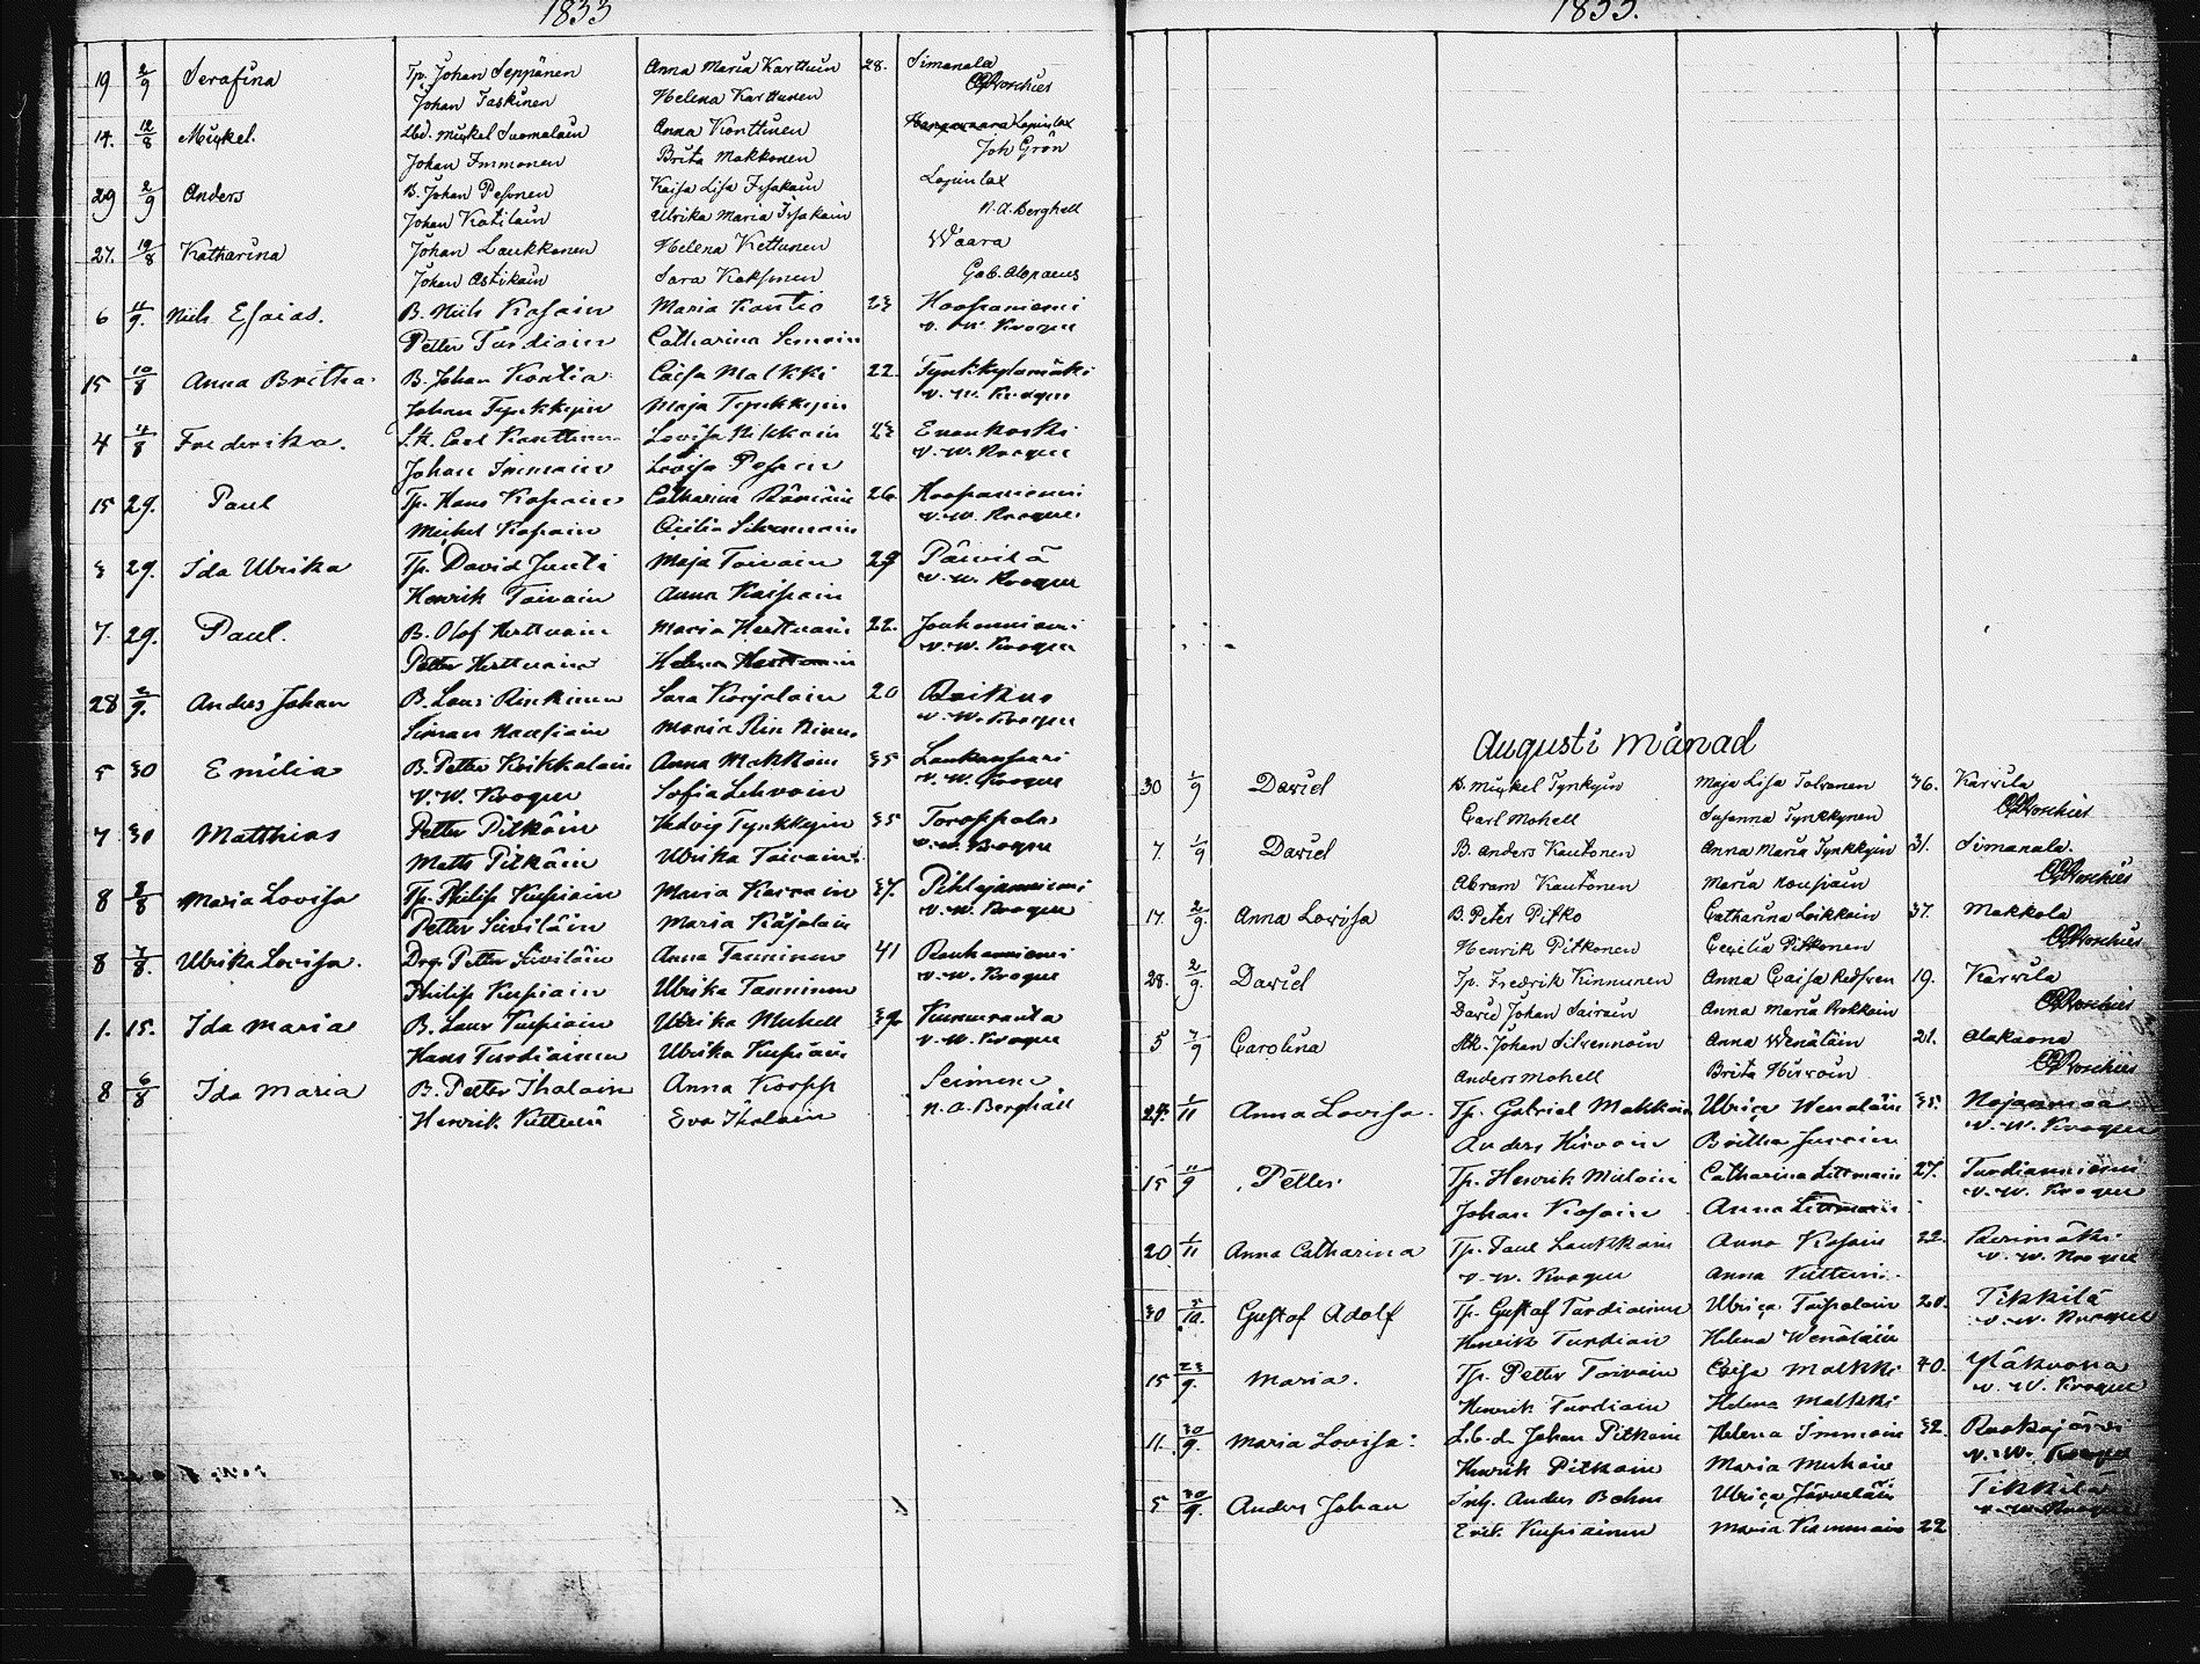 1833
19 2/9 Serafina Tp. Johan Seppänen Anna Maria Karttuin 28. Simanala
Johan Taskinen Helena Karttunen
14. 12/8 Mickel. Lbd. Mickel Suomalain Anna Konttinen Lapinlax
Johan Immonen Brita Makkonen Joh Grön
29 2/9 Anders B. Johan Pesonen Kaisa Lisa Issakain Lapinlax
Johan Katilain Ulrika Maria Issakain N. A. Berghell
27. 19/8 Katharina Johan Laukkanen Helena Kettunen Waara
Johan Astikain Sara Kaksonen Gab. Alopaeus
6 11/9. Nils Esaias. B. Nils Kosain Maria Kontio 23 Koosaniemi
Petter Turdiain Catharina v. W. Kroger
15 10/8 Anna Britha. B. Johan Kontia Caisa Malkki 22. Tynkkylämäki
Johan Tynkkyin Maja Tynkkyin v. W. Kroger
4 11/8 Frederika. Carl Lovisa 23 Enonkoski
Johan Immain Lovisa Posain v. W. Kroger
15 29. Paul Tp. Hans Kosain Catharina Räviäin 26. Koosaniemi
Michel Kosain Cicilia Silvennoin v. W. Kroger
3 29. Ida Ulrika Tp. David Junti Maja Toivain 29 Päivilä
Henrik Toivain Anna Kaipain v. W. Kroger
7. 29. Paul. B. Olof Herttuain Maria Herttuain 22. Jouhenniemi
Petter Herttuain Helena v. W. Kroger
28 2/9. Anders Johan B. Lars Rinkinen Sara Korjalain 20 Raikuu
Simon Nousiain Maria Rinkinen v. W. Kroger
5 30 Emilia B. Petter Koikkalain Anna Makkoin 35 Laukansaari
v. W. Kroger Sofia Lehvoin v. W. Kroger
7 30 Matthias Petter Pitkäin Hedvig Tynkkyin 35 Toroppala
Matts Pitkäin Ulrika Toivain v. W. Kroger
8 2/8 Maria Lovisa Tp. Philip Kupiain Maria Karvain 37. Pihlajaniemi
Petter Siviläin Maria Käyalain v. W. Kroger
8 7/8. Ulrika Lovisa. Drg. Petter Siviläin Anna Tanninen 41 Rauhaniemi
Philip Kupiain Ulrika Tanninen v. W. Kroger
1. 15. Ida Maria B. Lars Kupiain Ulrika Muhell Kummranta
Hans Turdiainen Ulrika Kupiain v. W. Kroger
8 6/8 Ida Maria B. Petter Ihalain Anna Koopp
Henrik Kuttuin Eva Ihalain N. A. Berghäll
1833.
Augusti Månad
30 1/9 David B. Mickel Tynkyin Maja Lisa Tolvanen 36. Karvila
Carl Mohell Susanna Tynkkynen
7. 1/9 David B. Anders Kautonen Anna Maria Tynkkyin 31. Simanala.
Abram Kautonen Maria Nousiain
17. 2/9. Anna Lovisa B. Peter Pitko Catharina Loikkain 37. Makkola
Henrik Pitkonen Cecilia Pitkonen
28. 2/9. David Tp. Fredrik Kinnunen Anna Caisa Redsven 19. Karvila
David Johan Sairain Anna Maria Rokkain
5 7/9 Carolina Johan Silvennoin Anna Wenäläin 21. Alakuona
Anders Mohell Brita Hirvoin
27. 1/11 Anna Lovisa. Tp. Gabriel Makkoin Ulrica Wenaläin 35. Nojanmaa
Anders Hirvoin Britha v. W. Kroger
15 11/9 Petter. Tp. Henrik Miiloin Catharina Littmain 27. Turdianniemi
Johan Kosain Anna Littmain v. W. Kroger
20 1/11 Anna Catharina Tp. Paul Laukkain Anna Kosain 22. Parimäki
v. W. Kroger Anna Kuttuin. v. W. Kroger
30 5/10. Gustaf Adolf Tp. Gustaf Turdiainen Ulrica Taipalain 20. Pikkilä
Henrik Turdiain Helena Wenäläin v. W. Kroger
15 23/9. Maria. Tp. Petter Toivain Caisa Malkki 40. Yläkuona
Henrik Turdiain Helena Malkki v. W. Kroger
11. 30/9. Maria Lovisa. L.b.d. Johan Pitkain Helena Immoin 32. Ruokojärvi
Henrik Pitkain Maria Muhoin v. W. Kroger
5 30/9. Anders Johan Inh. Anders Bohm Ulrica Järveläin Tikkilä
Erik Kupiainen Maria Kammoin 22 v. W. Kroger